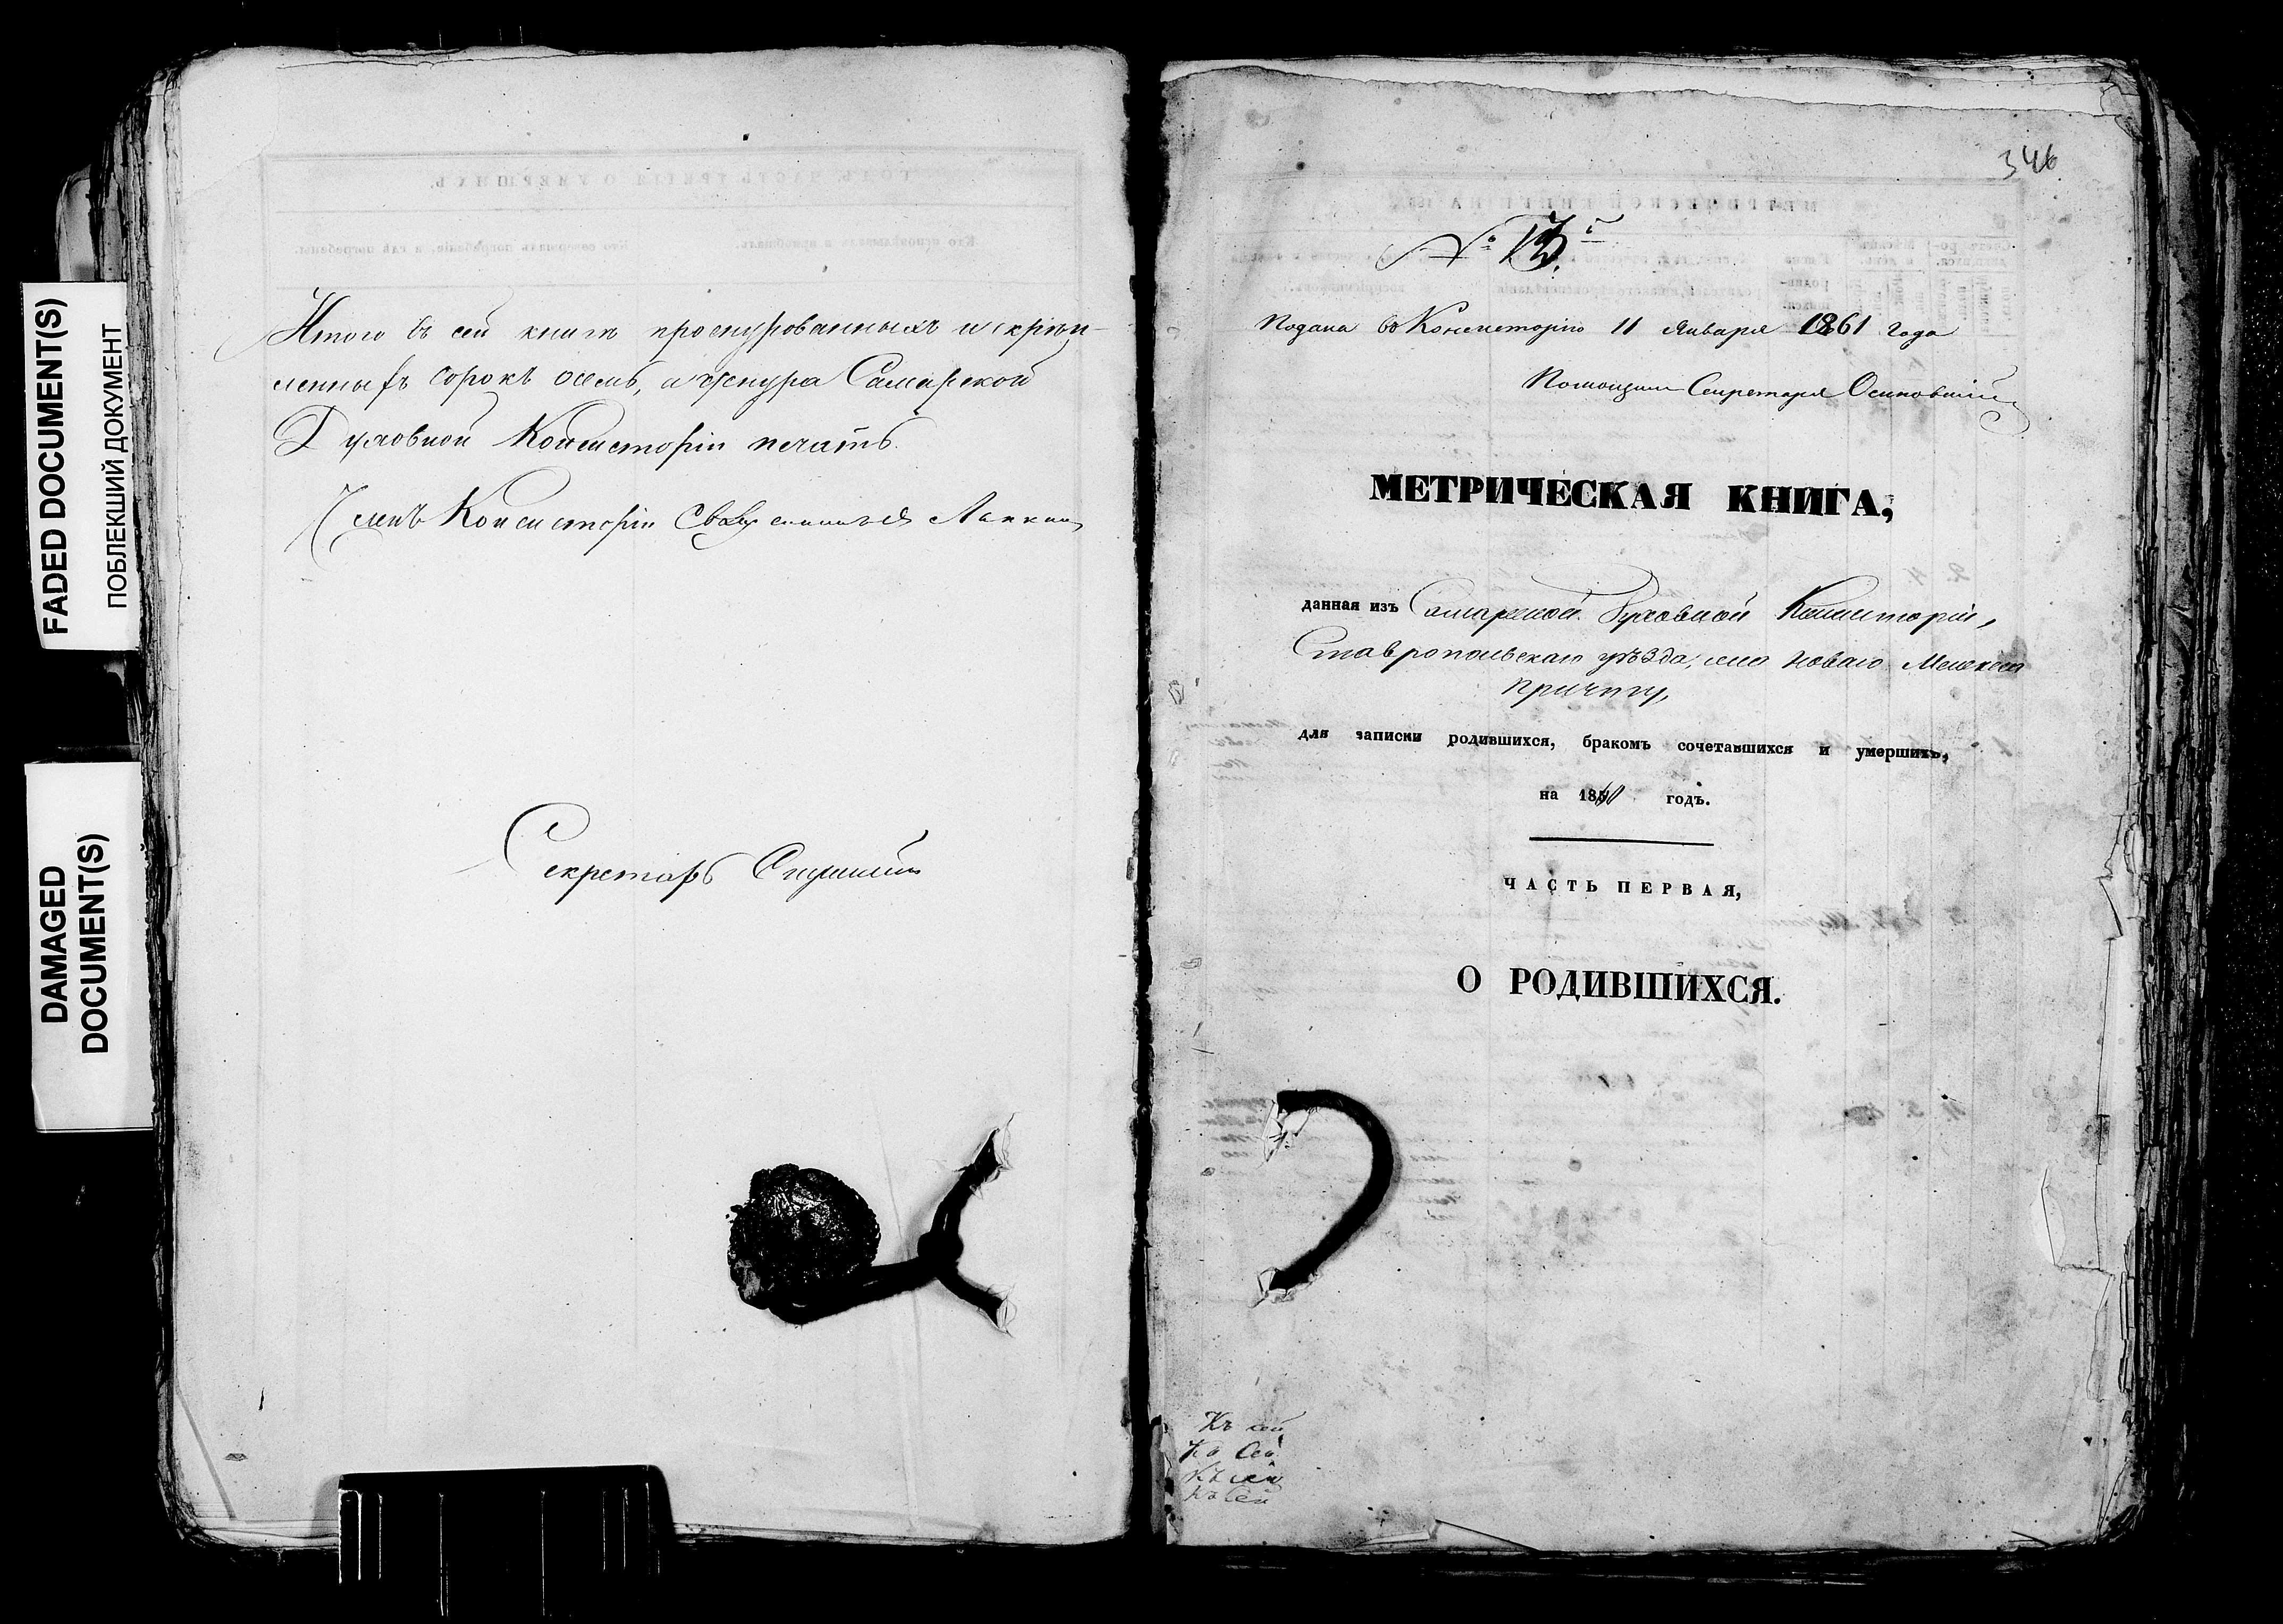 FADED DOCUMENT(S)
ПОБЛЕКШИЙ ДОКУМЕНТ
DAMAGED
DOCUMENT(S)
Итого въ сей книгѣ прошнурованныхъ и скрѣп-
ленныхъ сорокъ осемь, а у шнура Самарской
Духовной Консисторіи печать.
Членъ Консисторіи Священникъ
Секретарь
346
№
Подана въ Консисторію 11 Января 1861 года
Помощникъ Секретаря Осиповскій
МЕТРИЧЕСКАЯ КНИГА,
данная изъ Самарской Духовной Консисторіи,
Ставропольскаго уѣзда, села Новаго Мелекеса
причту,
для записки родившихся, бракомъ сочетавшихся и умершихъ,
на 1860 годъ.
ЧАСТЬ ПЕРВАЯ,
О РОДИВШИХСЯ.
Къ сей
Къ Сей
Къ сей
Къ Сей